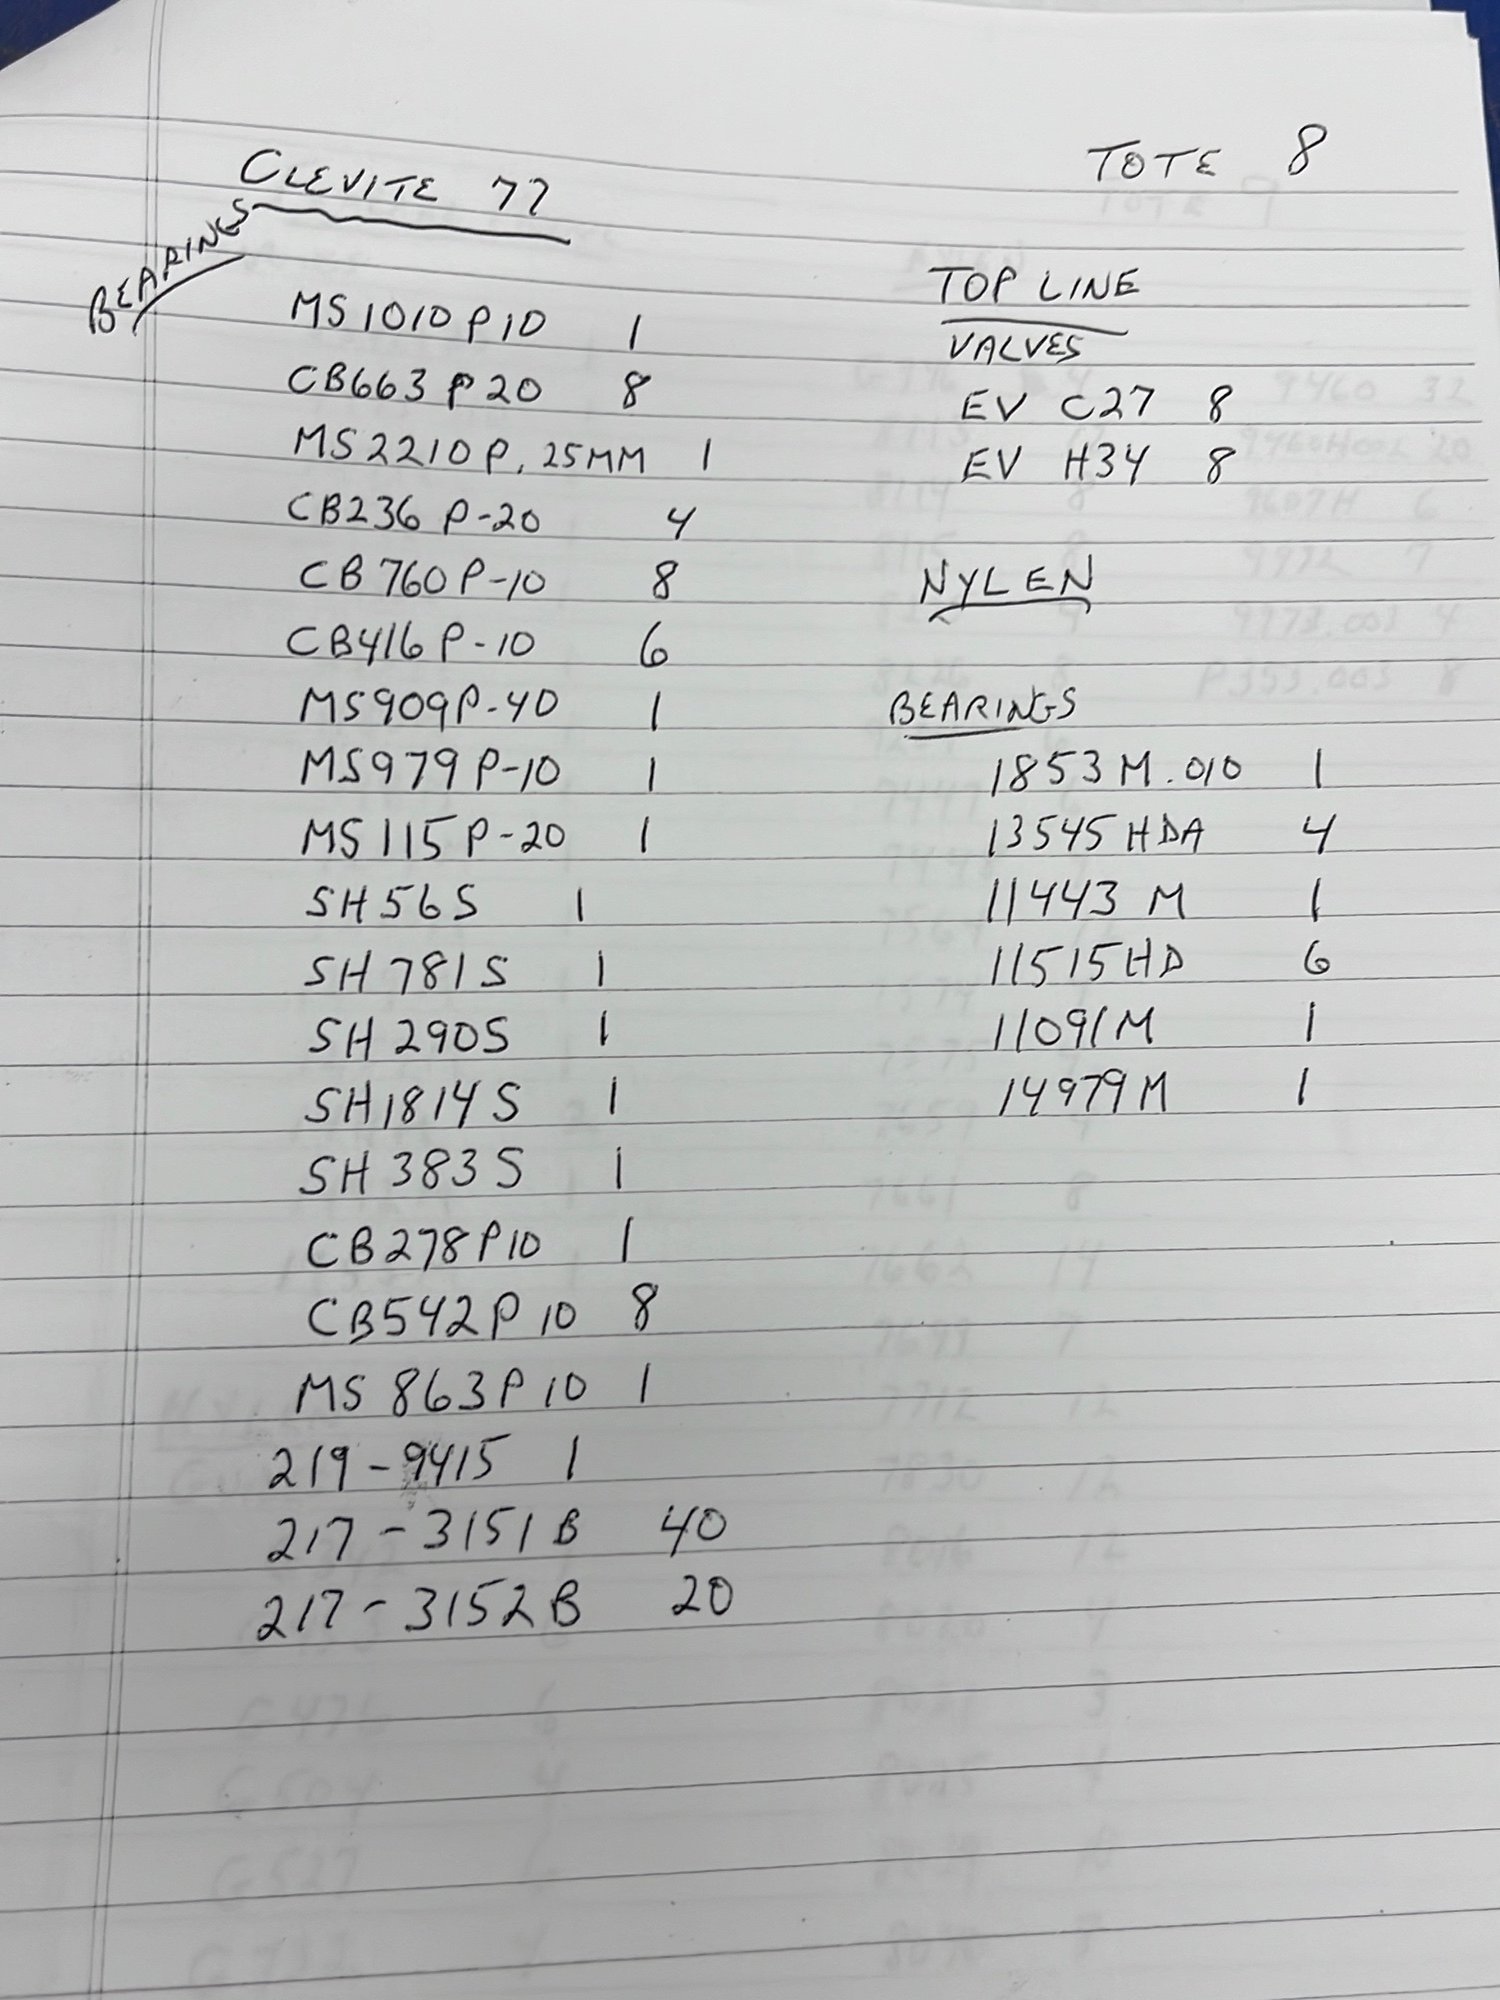 TOTE 8
CLEVITE 77
BEARINGS
MS1010P10 1
CB663P20 8
MS2210P.25MM 1
CB236P-20 4
CB760P-10 8
CB416P-10 6
MS909P-40 1
MS979P-10 1
MS115P-20 1
SH56S 1
SH781S 1
SH290S 1
SH1814S 1
SH383S 1
CB278P10 1
CB542P10 8
MS863P10 1
219-9415 1
217-3151B 40
217-3152B 20
TOP LINE
VALVES
EV C27 8
EV H34 8
NYLEN
BEARINGS
1853M.010 1
13545HDA 4
11443M 1
11515HD 6
11091M 1
14979M 1